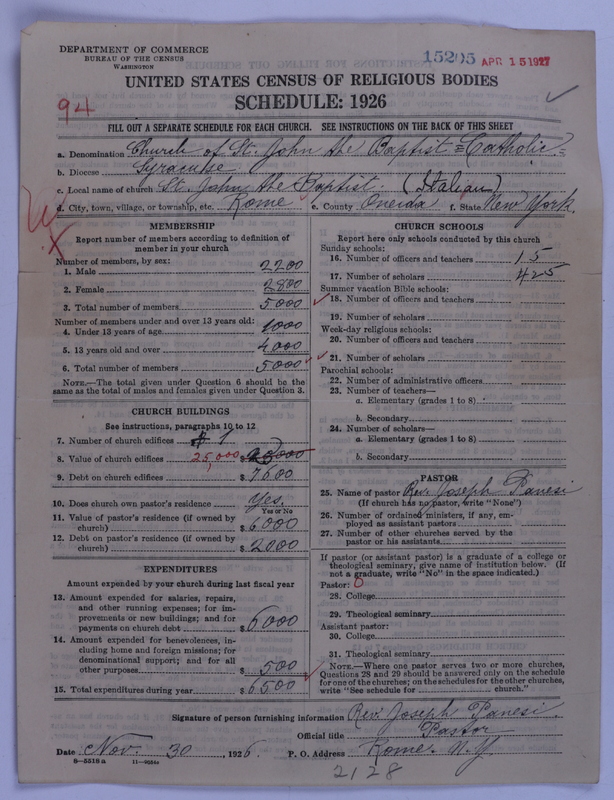 DEPARTMENT OF COMMERCE
BUREAU OF THE CENSUS
WASHINGTON
15205 APR 15 1927
UNITED STATES CENSUS OF RELIGIOUS BODIES
94
SCHEDULE: 1926
FILL OUT A SEPARATE SCHEDULE FOR EACH CHURCH. SEE INSTRUCTIONS ON THE BACK OF THIS SHEET
a. Denomination Church of St. John the Baptist = Catholic =
b. Diocese Syracuse
c. Local name of church St. John the Baptist. (Italian)
d. City, town, village, or township, etc. Rome e. County Oneida f. State New York.
MEMBERSHIP
Report number of members according to definition of member in your church
Number of members, by sex:
1. Male 2200
2. Female 2800
3. Total number of members 5000
Number of members under and over 13 years old:
4. Under 13 years of age 1000
5. 13 years old and over 4000
6. Total number of members 5000
NOTE.—The total given under Question 6 should be the same as the total of males and females given under Question 3.
CHURCH BUILDINGS
See instructions, paragraphs 10 to 12
7. Number of church edifices 1
8. Value of church edifices 25,000
9. Debt on church edifices $ 7600
10. Does church own pastor's residence Yes.
Yes or No
11. Value of pastor's residence (if owned by church) $ 6000
12. Debt on pastor's residence (if owned by church) $ 2000
EXPENDITURES
Amount expended by your church during last fiscal year
13. Amount expended for salaries, repairs, and other running expenses; for improvements or new buildings; and for payments on church debt $ 6000
14. Amount expended for benevolences, including home and foreign missions; for denominational support; and for all other purposes $ 500
15. Total expenditures during year $ 6500
CHURCH SCHOOLS
Report here only schools conducted by this church
Sunday schools:
16. Number of officers and teachers 15
17. Number of scholars 425
Summer vacation Bible schools:
18. Number of officers and teachers
19. Number of scholars
Week-day religious schools:
20. Number of officers and teachers
21. Number of scholars
Parochial schools:
22. Number of administrative officers
23. Number of teachers—
a. Elementary (grades 1 to 8)
b. Secondary
24. Number of scholars—
a. Elementary (grades 1 to 8)
b. Secondary
PASTOR
25. Name of pastor Rev. Joseph Panesi
(If church has no pastor, write "None")
26. Number of ordained ministers, if any, employed as assistant pastors
27. Number of other churches served by the pastor or his assistants
If pastor (or assistant pastor) is a graduate of a college or theological seminary, give name of institution below. (If not a graduate, write "No" in the space indicated.)
Pastor: 0
28. College
29. Theological seminary
Assistant pastor:
30. College
31. Theological seminary
NOTE.—Where one pastor serves two or more churches, Questions 28 and 29 should be answered only on the schedule for one of the churches; on the schedules for the other churches, write "See schedule for church."
Signature of person furnishing information Rev. Joseph Panesi.
Official title Pastor
Date Nov. 30, 1926 P. O. Address Rome. N.Y.
8—5518 a
2128